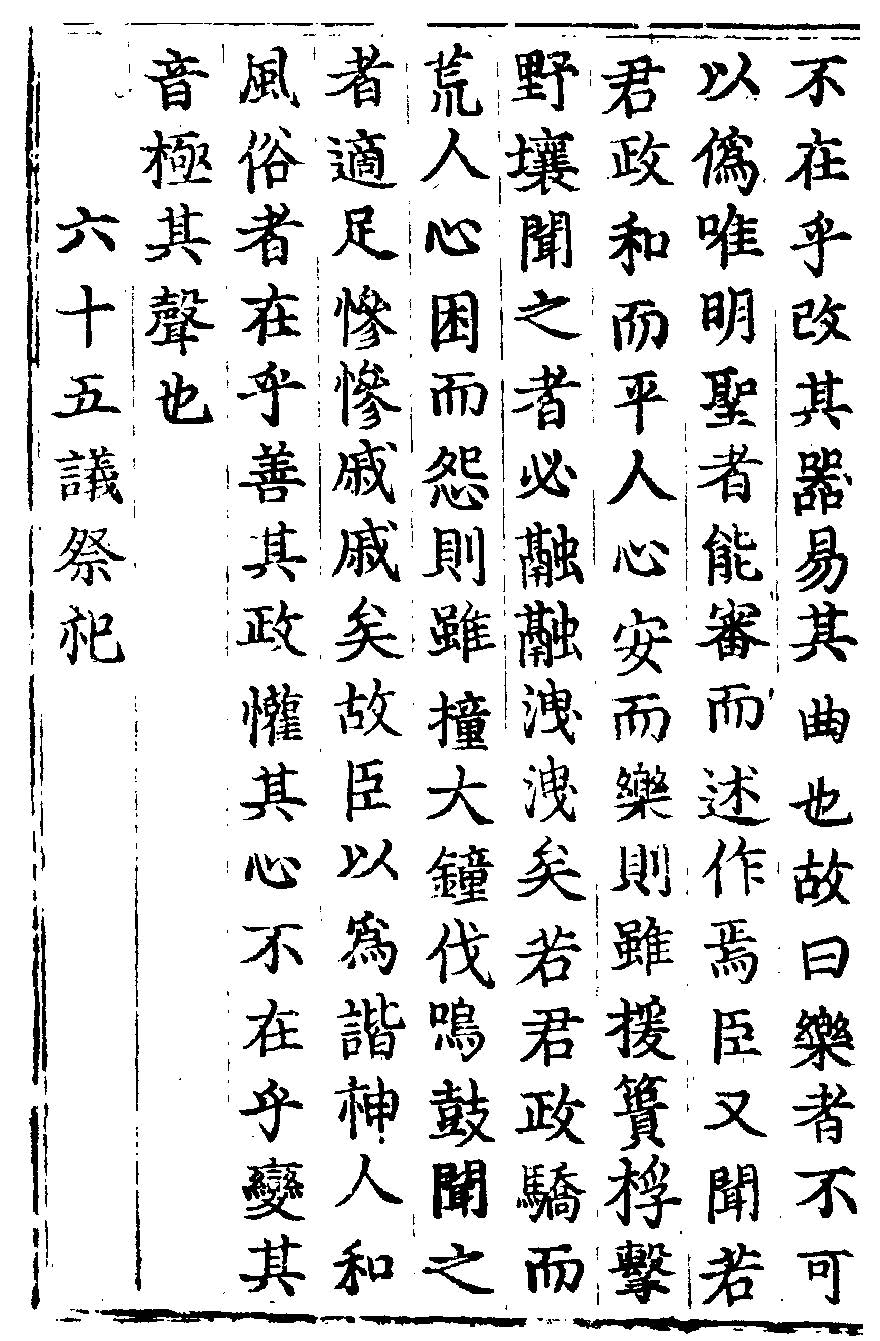 不在乎改其器易其曲也故曰樂者不可
以僞唯明聖者能審而述作焉臣又聞若
君政和而平人心安而樂則雖援蕢桴擊
野壤聞之者必融融洩洩矣若君政驕而
荒人心困而怨則雖撞大鐘伐鳴鼓聞之
者適足慘慘戚戚矣故臣以爲諧神人和
風俗者在乎善其政懽其心不在乎變其
音極其聲也
六十五議祭祀